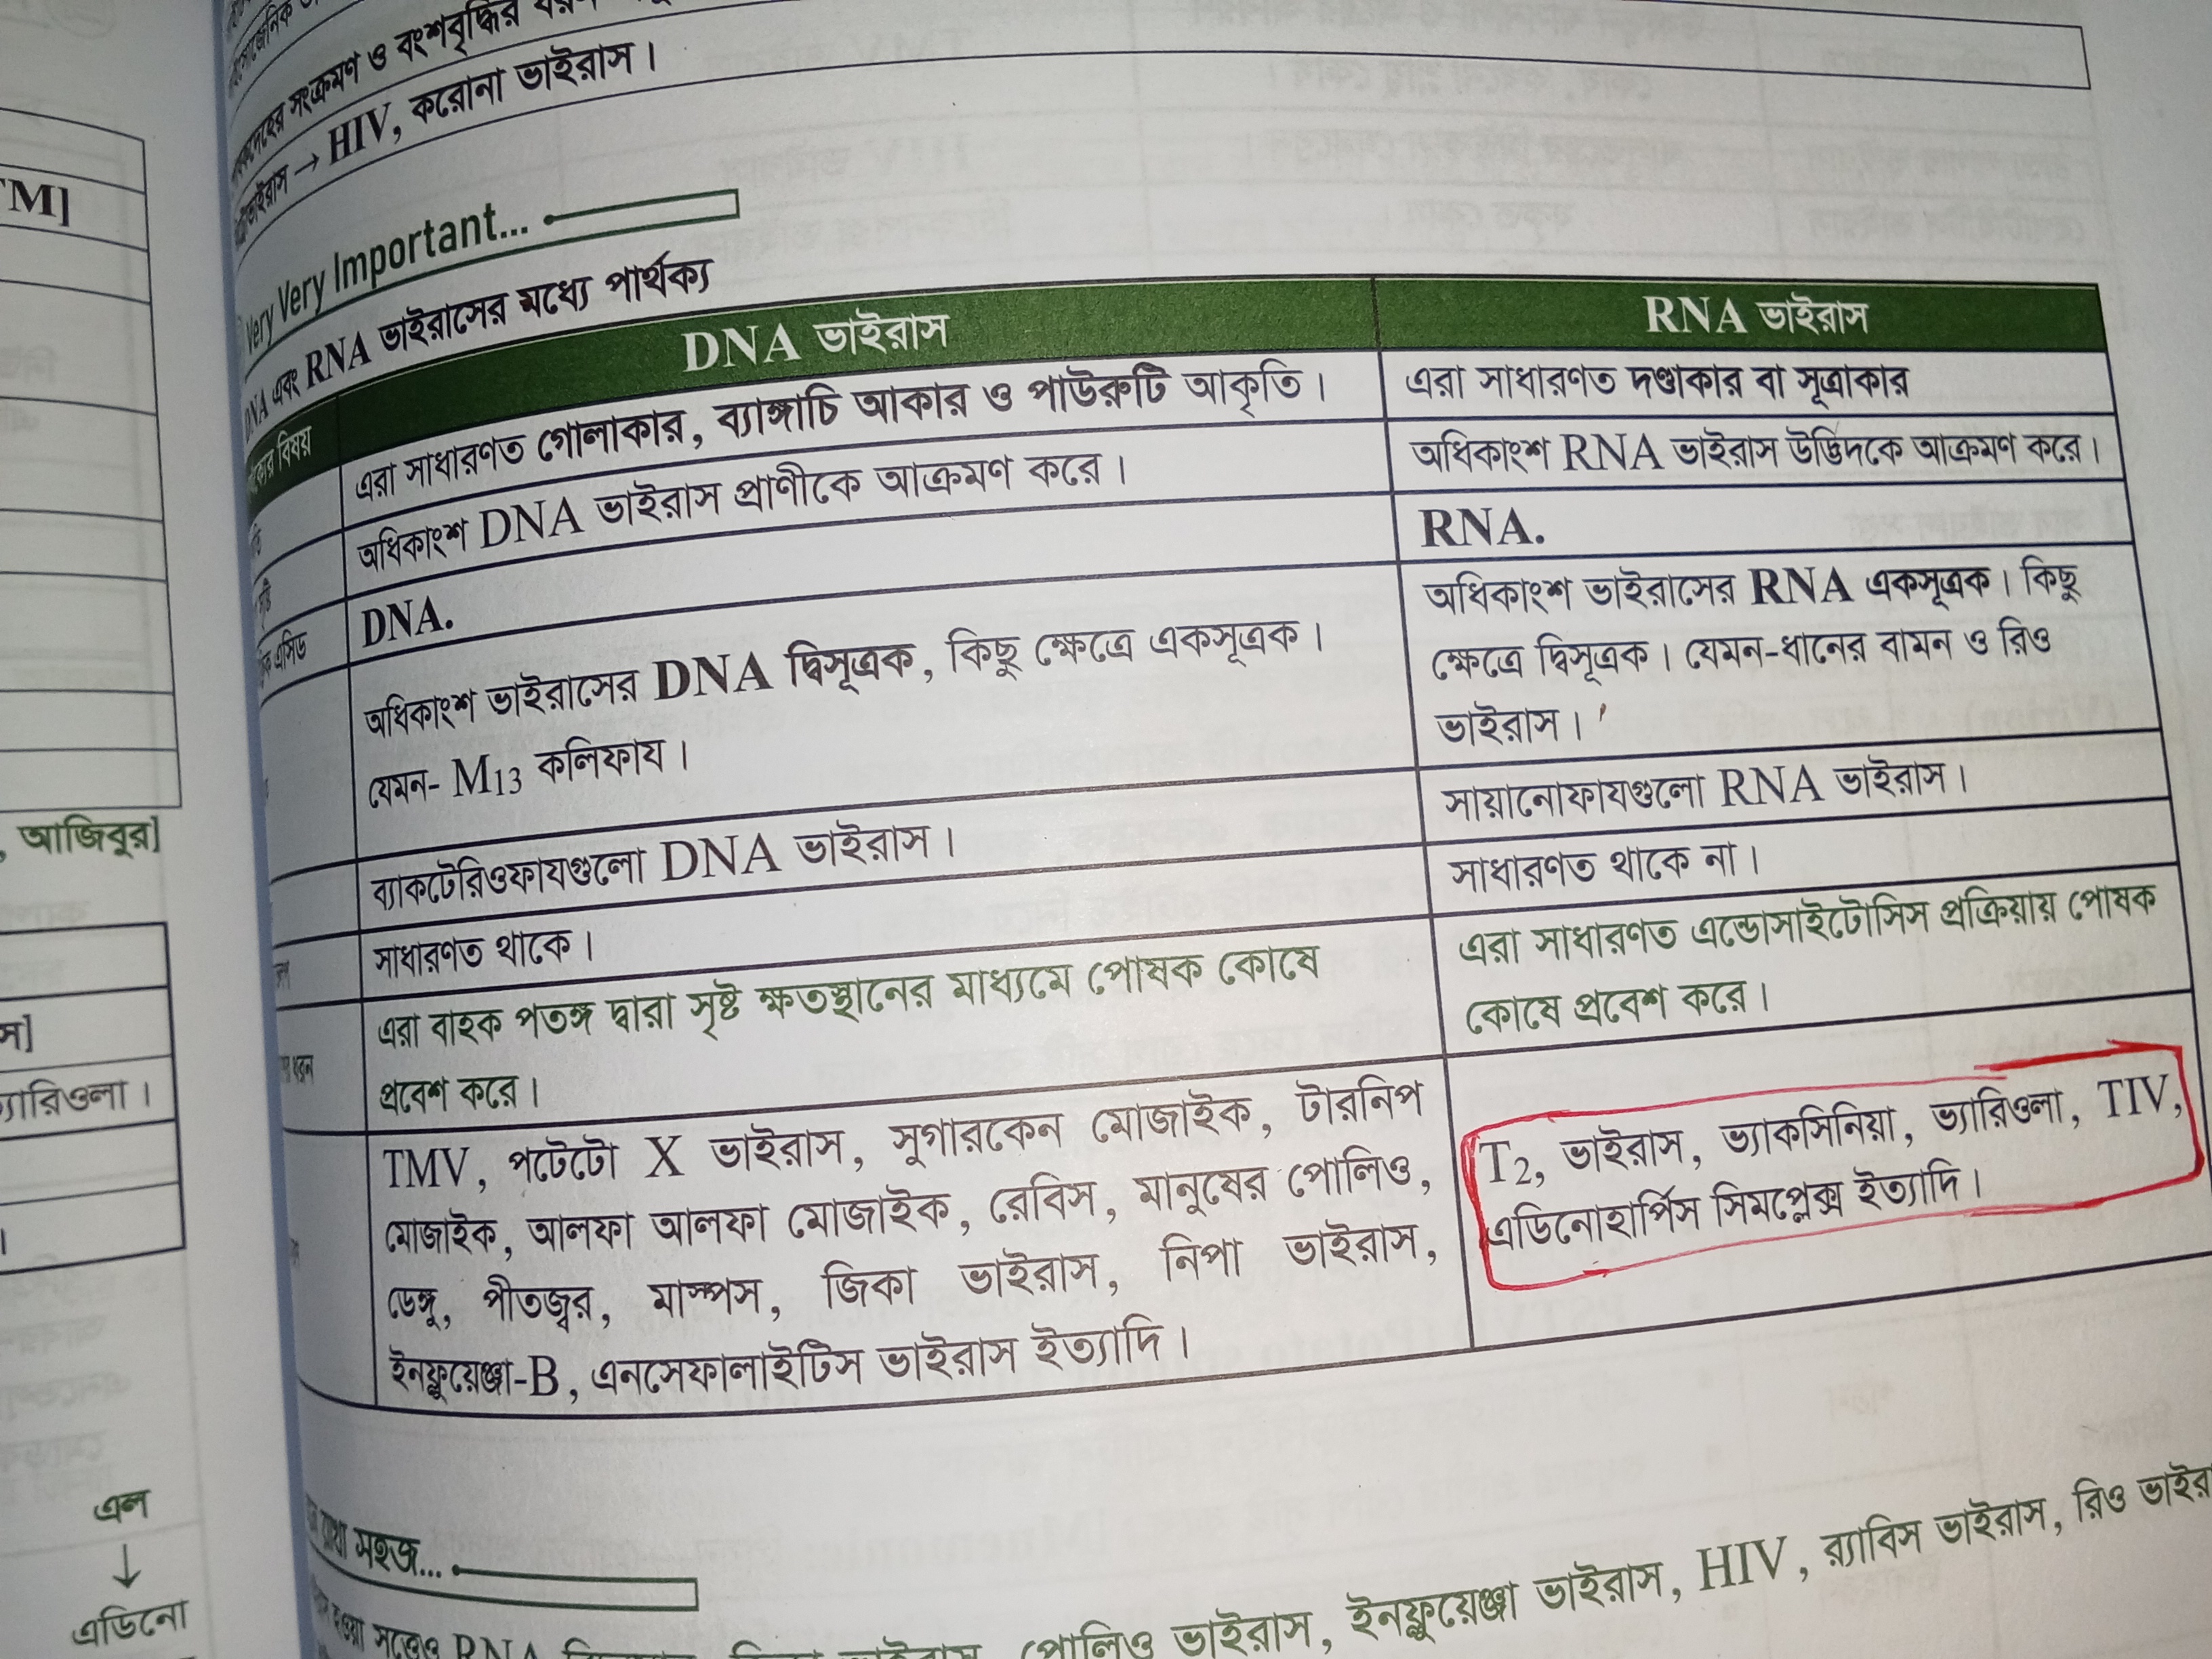 দেহের সংক্রমণ ও বংশবৃদ্ধির
ভাইরাস → HIV, করোনা ভাইরাস।
Very Very Important...
DNA এবং RNA ভাইরাসের মধ্যে পার্থক্য
বিষয় DNA ভাইরাস RNA ভাইরাস
এরা সাধারণত গোলাকার, ব্যাঙ্গাচি আকার ও পাউরুটি আকৃতি। এরা সাধারণত দণ্ডাকার বা সূত্রাকার
অধিকাংশ DNA ভাইরাস প্রাণীকে আক্রমণ করে। অধিকাংশ RNA ভাইরাস উদ্ভিদকে আক্রমণ করে।
এসিড DNA. RNA.
অধিকাংশ ভাইরাসের DNA দ্বিসূত্রক, কিছু ক্ষেত্রে একসূত্রক।
যেমন- M13 কলিফায।
অধিকাংশ ভাইরাসের RNA একসূত্রক। কিছু
ক্ষেত্রে দ্বিসূত্রক। যেমন-ধানের বামন ও রিও
ভাইরাস।
ব্যাকটেরিওফাযগুলো DNA ভাইরাস। সায়ানোফাযগুলো RNA ভাইরাস।
সাধারণত থাকে। সাধারণত থাকে না।
ধরন
এরা বাহক পতঙ্গ দ্বারা সৃষ্ট ক্ষতস্থানের মাধ্যমে পোষক কোষে
প্রবেশ করে।
এরা সাধারণত এন্ডোসাইটোসিস প্রক্রিয়ায় পোষক
কোষে প্রবেশ করে।
TMV, পটেটো X ভাইরাস, সুগারকেন মোজাইক, টারনিপ
মোজাইক, আলফা আলফা মোজাইক, রেবিস, মানুষের পোলিও,
ডেঙ্গু, পীতজ্বর, মাম্পস, জিকা ভাইরাস, নিপা ভাইরাস,
ইনফ্লুয়েঞ্জা-B, এনসেফালাইটিস ভাইরাস ইত্যাদি।
T2, ভাইরাস, ভ্যাকসিনিয়া, ভ্যারিওলা, TIV,
এডিনোহার্পিস সিমপ্লেক্স ইত্যাদি।
সহজ...
সত্ত্বেও RNA পোলিও ভাইরাস, ইনফ্লুয়েঞ্জা ভাইরাস, HIV, র‍্যাবিস ভাইরাস, রিও
TM]
, আজিবুর]
স]
্যারিওলা।
এল
↓
এডিনো